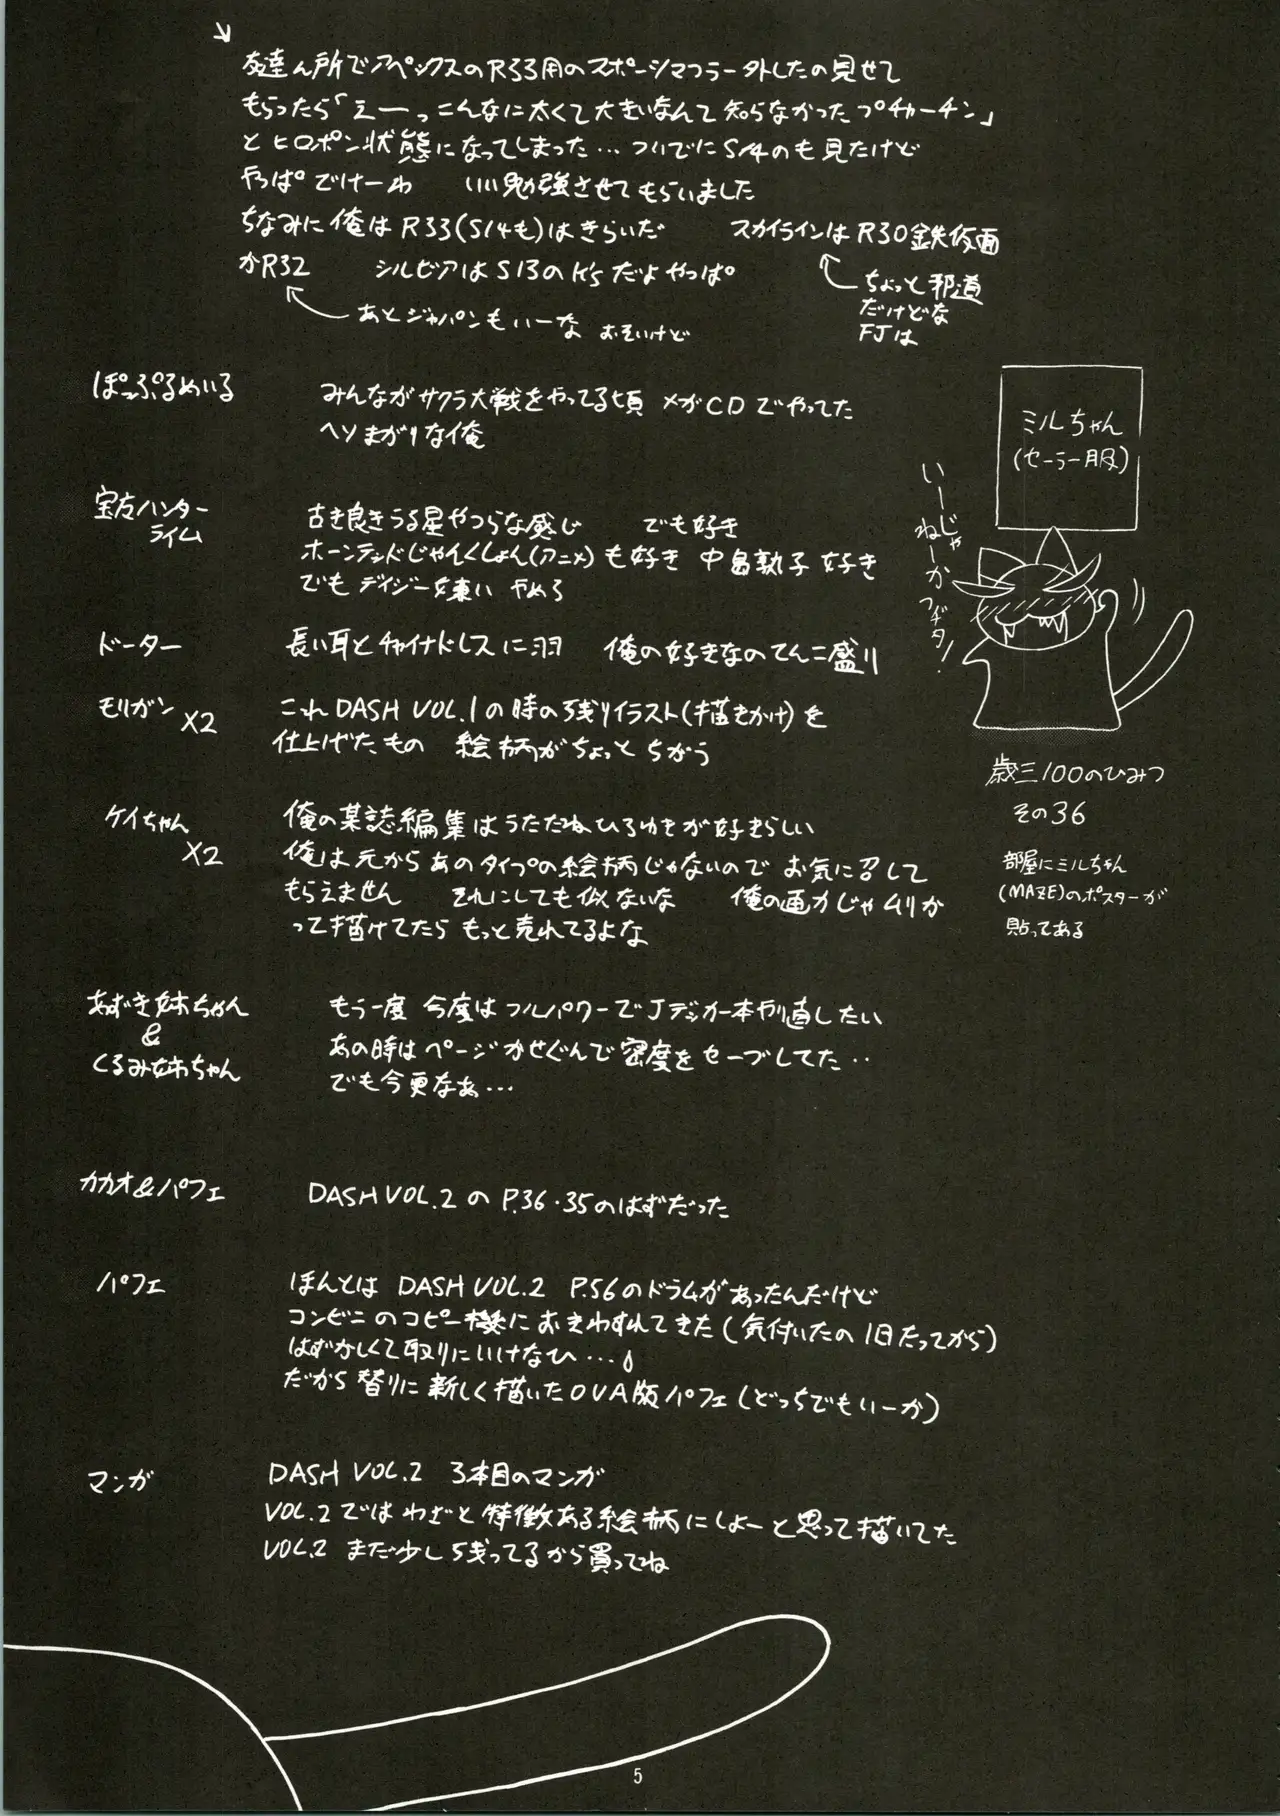 友達ん所でアペックスのR33用のスポーツマフラー外したの見せて
もらったら「えーっこんなに太くて大きいなんて知らなかったプチャーチン」
とヒロポン状態になってしまった…ついでにS14のも見たけど
やっぱでけーわ いい勉強させてもらいました
ちなみに俺はR33(S14も)はきらいだ スカイラインはR30鉄仮面
かR32 シルビアはS13のK'sだよやっぱ
ちょっと邪道
だけどな
FJは
あとジャパンもいーな おそいけど
ぽっぷるめいる
みんながサクラ大戦をやってる頃 メガCDでやってた
ヘソまがりな俺
ミルちゃん
(セーラー服)
いーじゃ
ねーか
宝魔ハンター
ライム
古き良きうる星やつらな感じ でも好き
ホーンテッドじゃんくしょん(アニメ)も好き 中島敦子 好き
でも デイジー嫌い やめろ
ドーター
長い耳とチャイナドレスに羽 俺の好きなのてんこ盛り
モリガン X2
これ DASH VOL.1の時の残りイラスト(描きかけ)を
仕上げたもの 絵柄がちょっと ちがう
歳三100のひみつ
その36
部屋にミルちゃん
(MAZE)のポスターが
貼ってある
ケイちゃん
X2
俺の某誌編集はうたたねひろゆきが好きらしい
俺は元からあのタイプの絵柄じゃないので お気に召して
もらえません それにしても似ないな 俺の画力じゃムリか
って描けてたら もっと売れてるよな
あずき妹ちゃん
&
くるみ姉ちゃん
もう一度 今度はフルパワーでJデッカー本やり直したい
あの時はページかせぐんで密度をセーブしてた‥
でも今更なぁ…
カカオ&パフェ
DASH VOL.2 の P.36・35のはずだった
パフェ
ほんとは DASH VOL.2 P.56のドラムがあったんだけど
コンビニのコピー機におきわすれてきた(気付いたの1日たってから)
はずかしくて取りにいけなひ…
だから替りに新しく描いたOVA版パフェ(どっちでもいーか)
マンガ
DASH VOL.2 3本目のマンガ
VOL.2ではわざと特徴ある絵柄にしよーと思って描いてた
VOL.2 まだ少し残ってるから買ってね
5